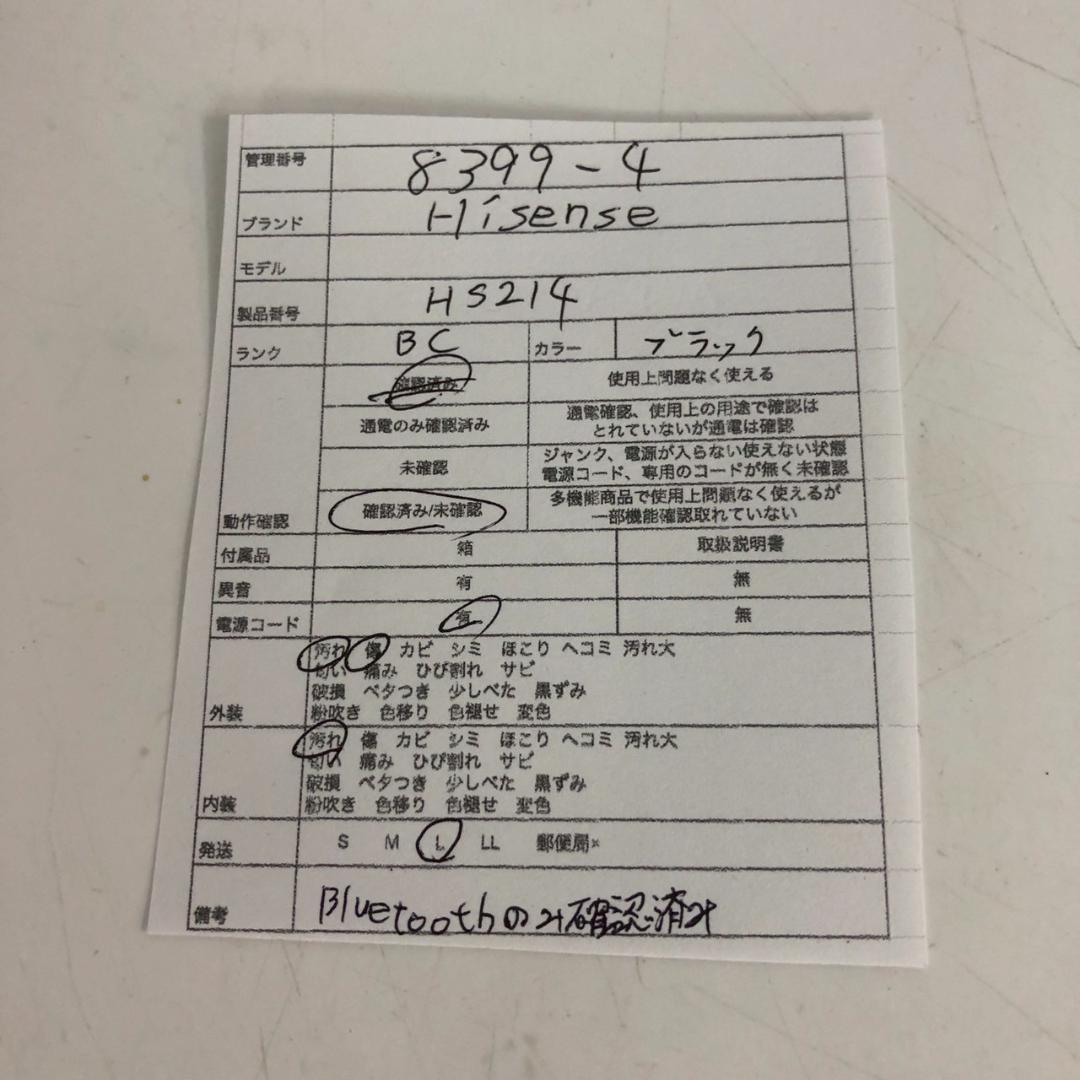 管理番号 8399-4
ブランド Hisense
モデル
製品番号 HS214
ランク BC カラー ブラック
確認済み 使用上問題なく使える
通電のみ確認済み 通電確認、使用上の用途で確認は
とれていないが通電は確認
未確認 ジャンク、電源が入らない使えない状態
電源コード、専用のコードが無く未確認
動作確認 確認済み/未確認 多機能商品で使用上問題なく使えるが
一部機能確認取れていない
付属品 箱 取扱説明書
異音 有 無
電源コード 有 無
汚れ 傷 カビ シミ ほこり ヘコミ 汚れ大
匂い 痛み ひび割れ サビ
破損 ベタつき 少しべた 黒ずみ
外装 粉吹き 色移り 色褪せ 変色
汚れ 傷 カビ シミ ほこり ヘコミ 汚れ大
匂い 痛み ひび割れ サビ
破損 ベタつき 少しべた 黒ずみ
内装 粉吹き 色移り 色褪せ 変色
発送 S M L LL 郵便局×
備考 Bluetoothのみ確認済み